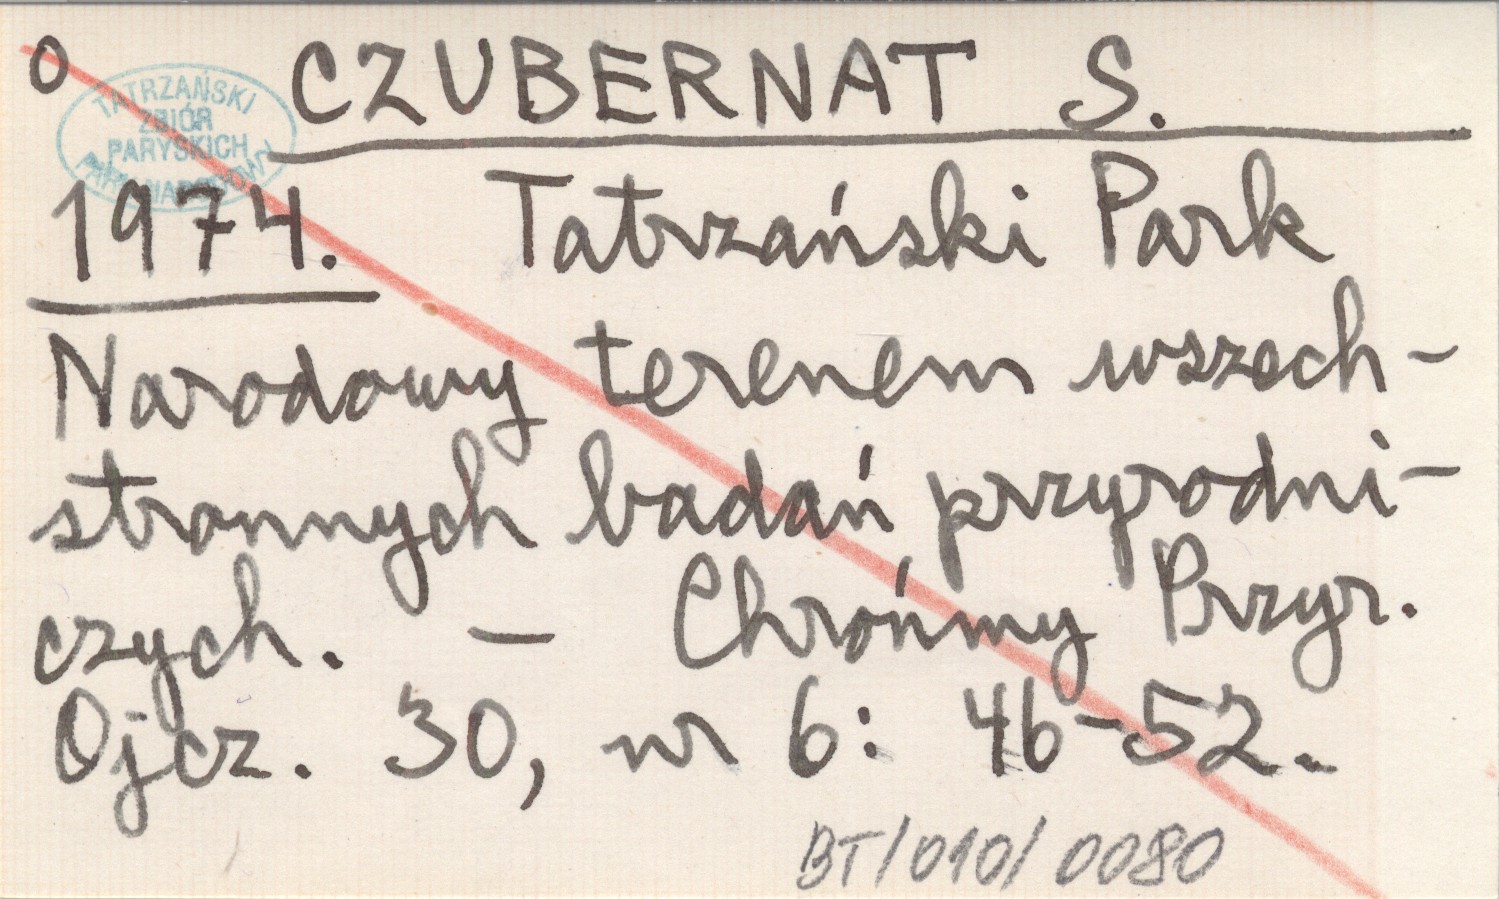 O CZUBERNAT S.
TATRZAŃSKI
ZBIÓR
PARYSKICH
PARK NARODOWY
1974. Tatrzański Park
Narodowy terenem wszech-
stronnych badań przyrodni-
czych. – Chrońmy Przyr.
Ojcz. 30, nr 6: 46-52.
BT/010/0080